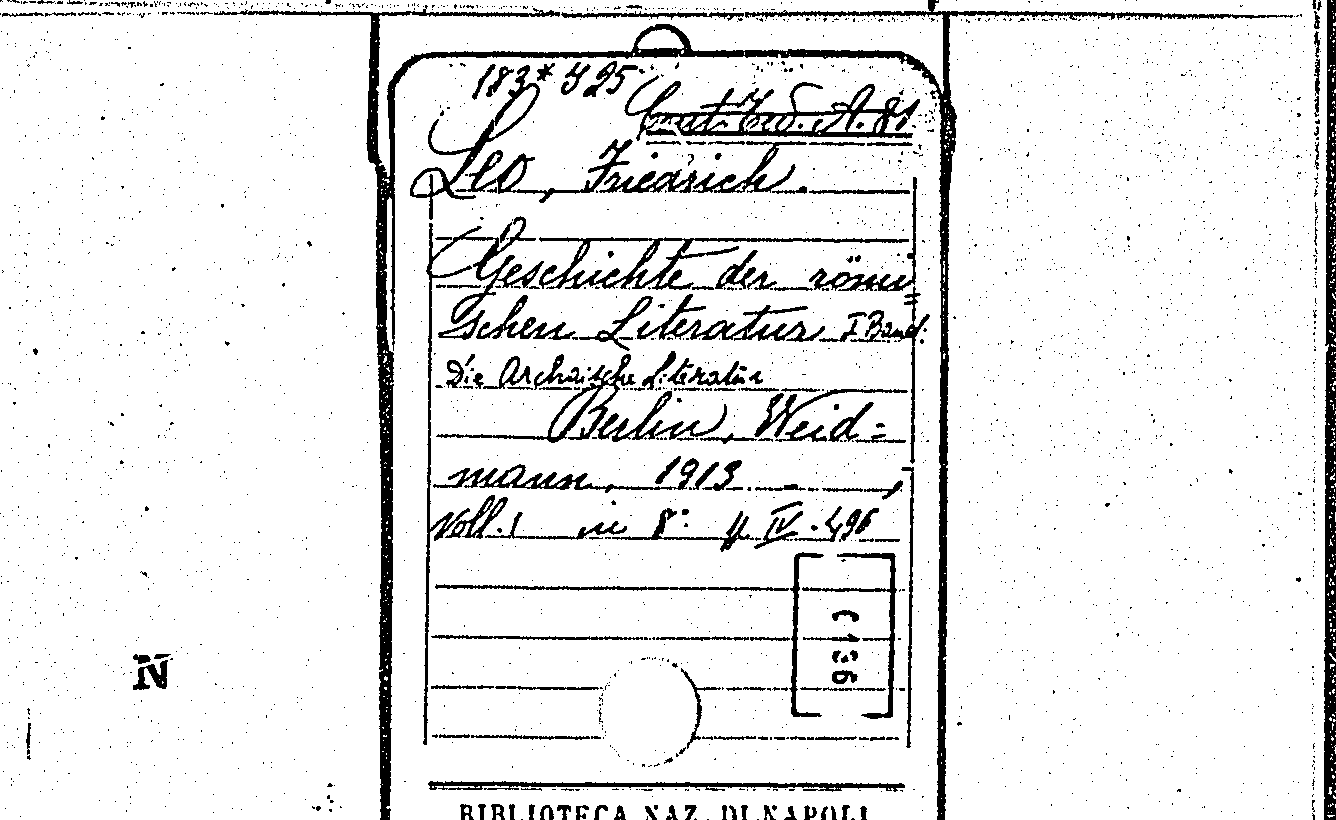 183* J 25
Cont. Ted. A. 81
Leo, Friedrich.
Geschichte der römi=
schen Literatur I Band.
Die Archaische Literatur
Berlin, Weid=
mann, 1913
Voll. 1 in 8° pp IV-496
C 136
N
BIBLIOTECA NAZ. DI NAPOLI